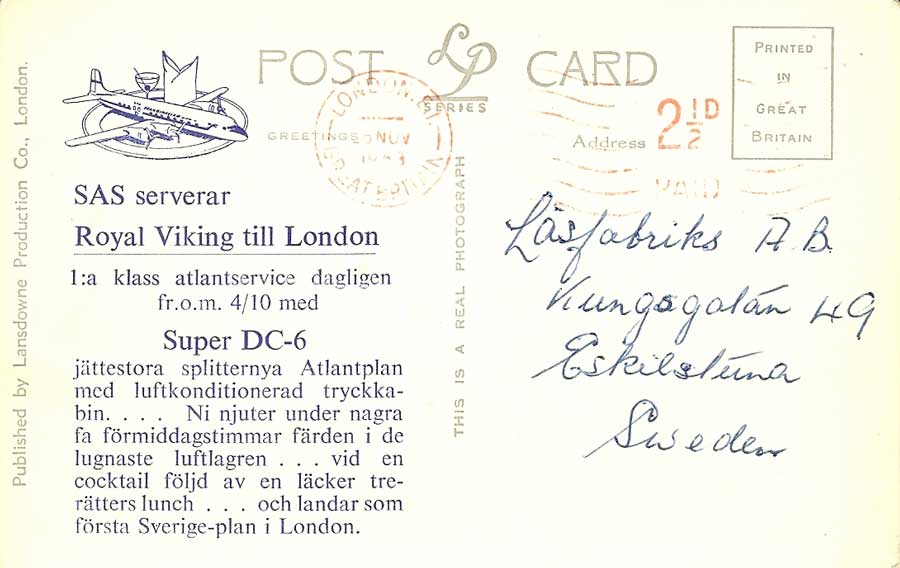 POST LP CARD
SERIES
GREETINGS
Address
PRINTED
IN
GREAT
BRITAIN
LONDON
NOV
GREAT BRITAIN
2½D
PAID
Published by Lansdowne Production Co., London.
THIS IS A REAL PHOTOGRAPH
SAS serverar
Royal Viking till London
1:a klass atlantservice dagligen
fr.o.m. 4/10 med
Super DC-6
jättestora splitternya Atlantplan
med luftkonditionerad tryckka-
bin. . . . Ni njuter under nagra
fa förmiddagstimmar färden i de
lugnaste luftlagren . . . vid en
cocktail följd av en läcker tre-
rätters lunch . . . och landar som
första Sverige-plan i London.
Låsfabriks A.B.
Kungsgatan 49
Eskilstuna
Sweden